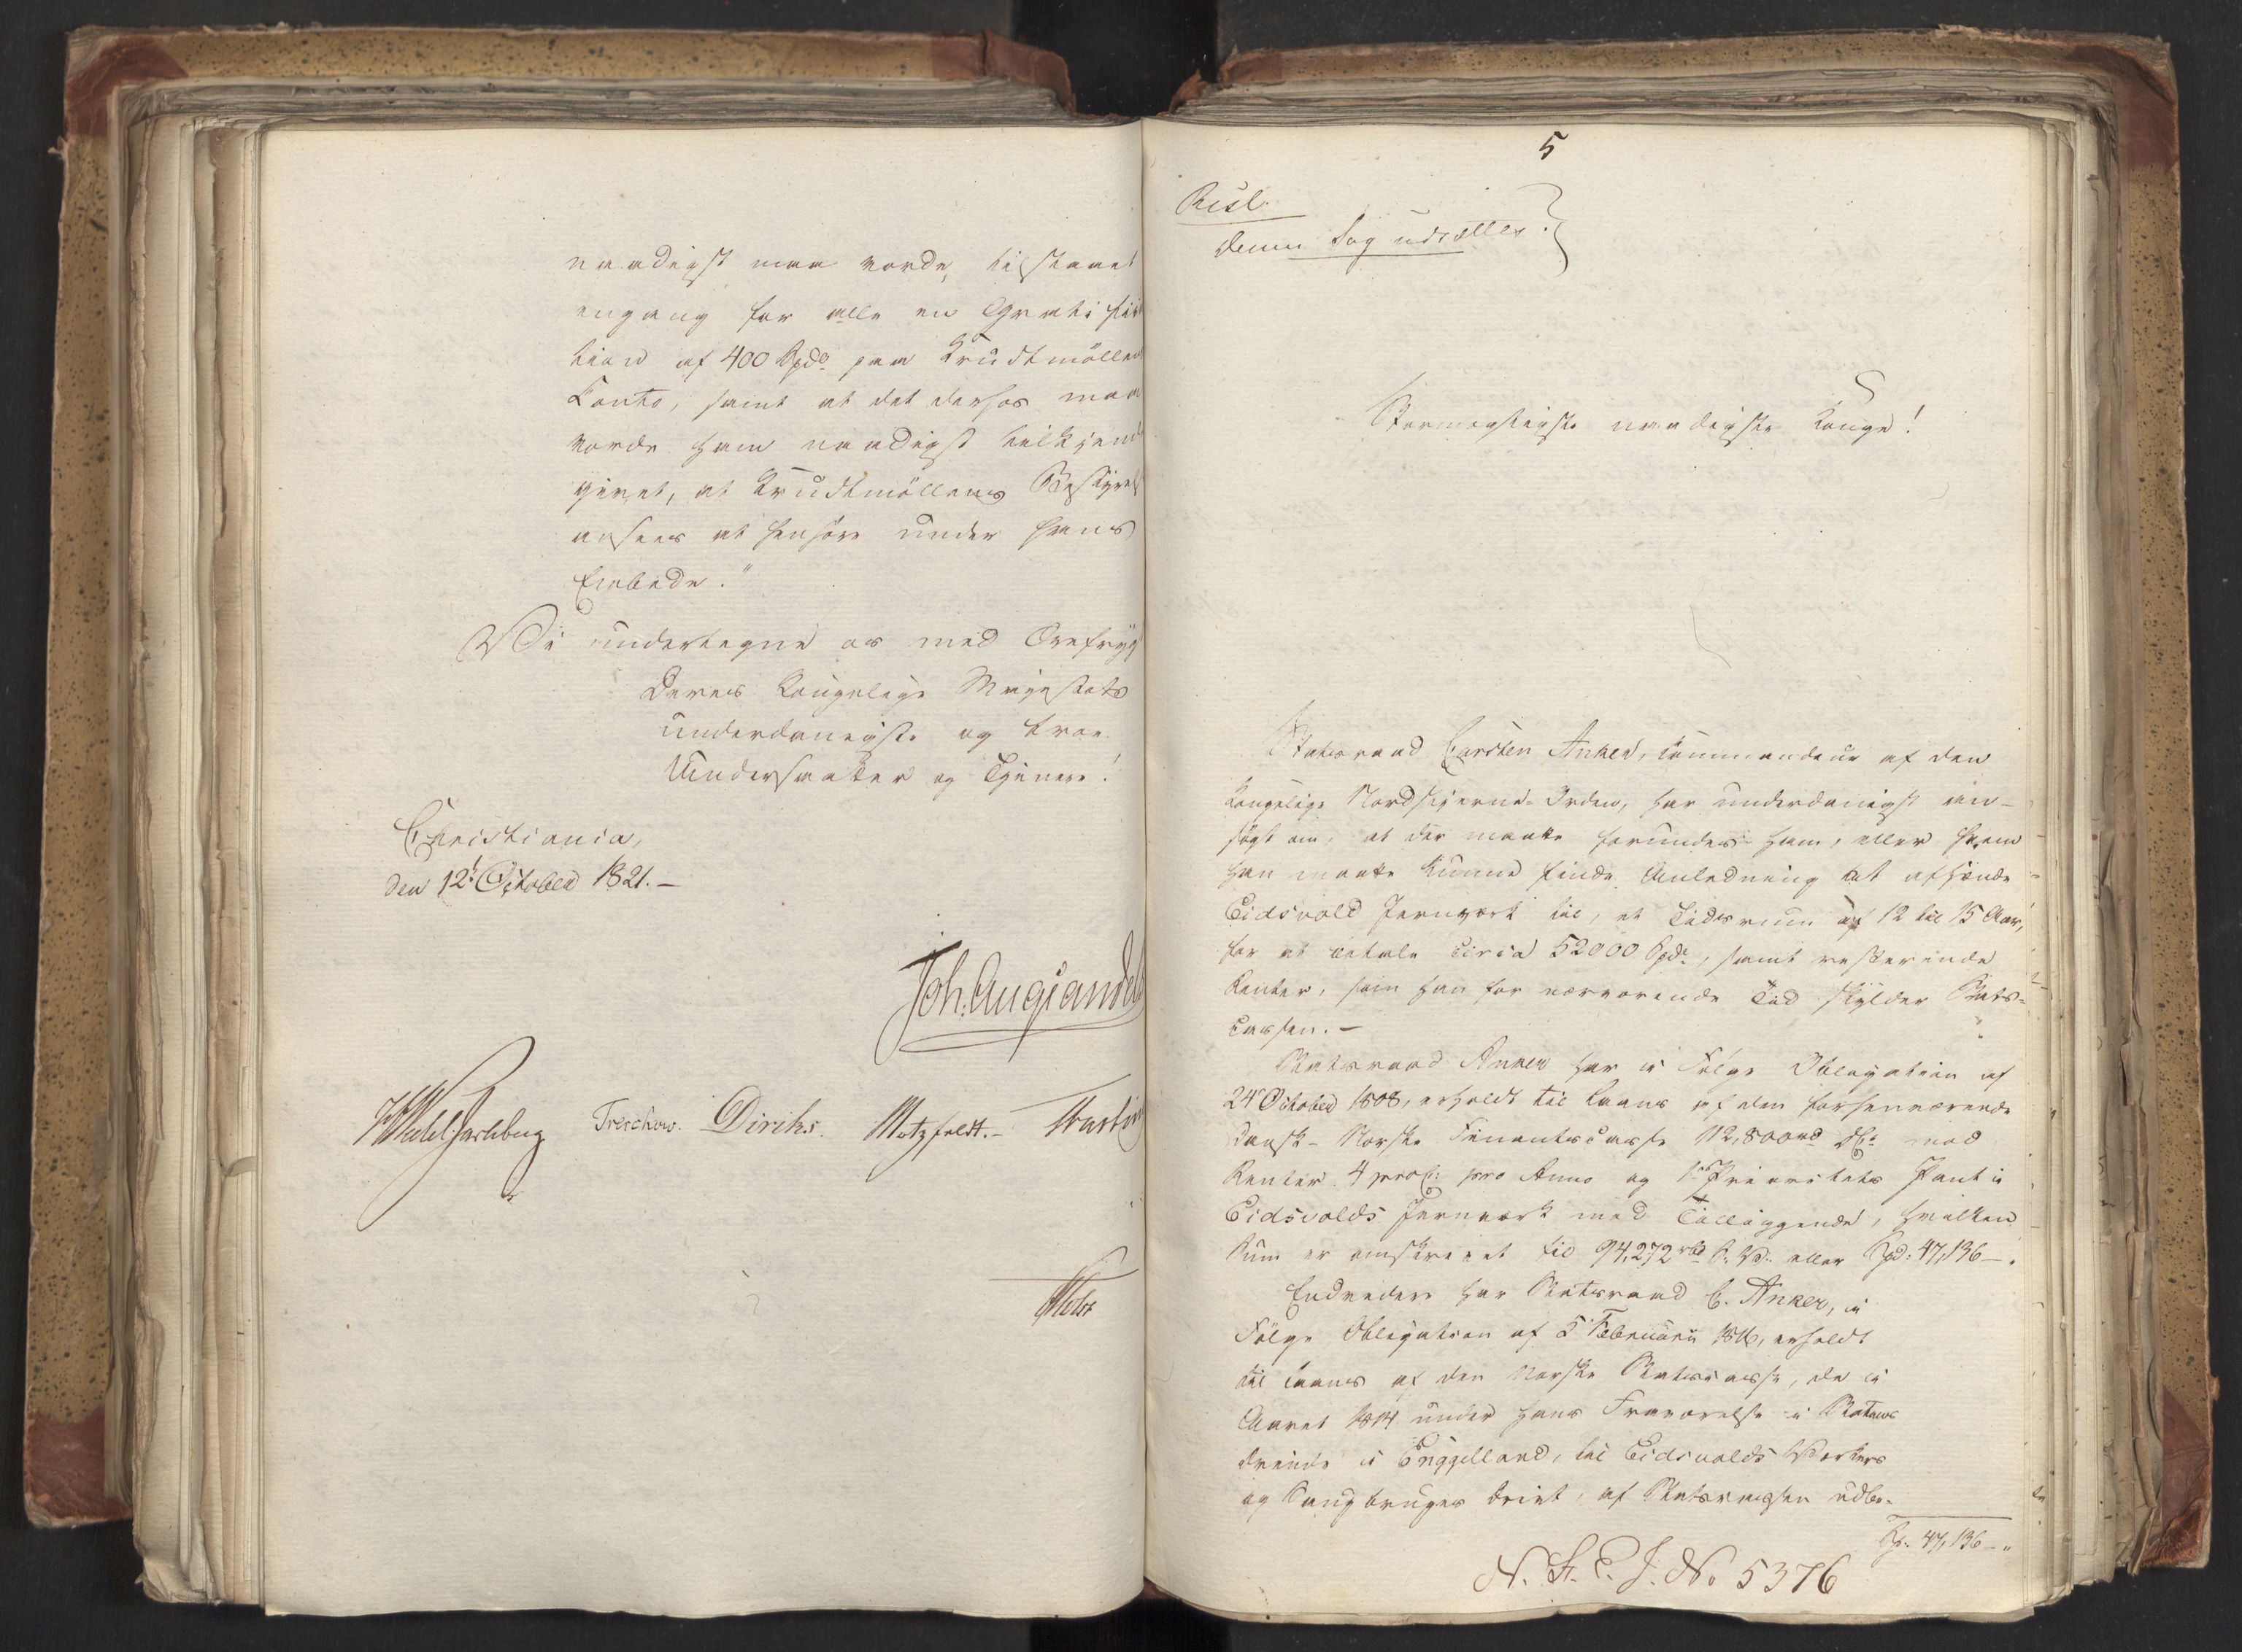 naadigst maa vorde tilstaaet
engang for alle en Gratifica
tion af 400 Spd. paa Krudtmøllens
Conto, samt at det derhos maa
vorde ham naadigst tilkjende
givet, at Krudtmøllens Bestyrels
ansees at henhøre under hans
Embede."
Vi undertegne os med Ærefrygt
Deres Kongelige Majestæts
underdanigste og troe
Undersaatter og Tjenere!
Christiania,
den 12t October 1821. —
Joh. Aug. Sandels
Treschow. Diriks. Motzfeldt. —
Holst
5
Resl.
Denne Sag udsættes.
Stormægtigste naadigste Konge!
Statsraad Carsten Anker, Commandeur af den
kongelige Nordstjerne-Orden, har underdanigst an-
søgt om, at der maatte forundes ham, eller hvem
han maatte kunne finde Anledning at afhænde
Eidsvold Jernværk til, et Tidsrum af 12 til 15 Aar,
for at betale circa 52000 Spd., samt resterende
Renter, som han for nærværende Tid skylder Stats-
cassen. —
Statsraad Anker har i Følge Obligation af
24 October 1808, erholdt til Laans af den forhenværende
Dansk-Norske Finantscasse 112,800 rd DC. mod
Renter 4 proC. pro Anno og 1ste Prioritets Pant i
Eidsvolds Jernværk med Tilliggende, hvilken
Sum er omskrevet til 94,272 rbd S. V. eller Spd: 47,136 — .
Endvidere har Statsraad C. Anker, i
Følge Obligation af 5 Februarii 1816, erholdt
til Laans af den Norske Statscasse, da i
Aaret 1814 under hans Fraværelse i Statens
Ærinde i Engelland, til Eidsvolds Værkers
og Saugbruges Drivt, af Statscassen udbe-
Sp. 47,136 — "
N. S. E. J. No 5376